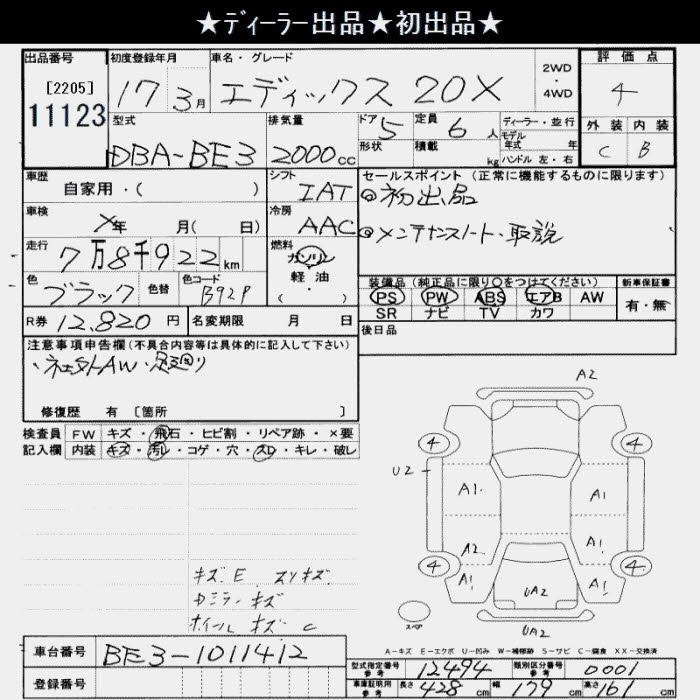 ★ディーラー出品★初出品★
出品番号 初度登録年月 車名・グレード 2WD・4WD 評価点
[2205] 17 3月 エディックス 20X 4
11123
型式 排気量 ドア 5 定員 6人 ディーラー・並行 外装 内装
DBA-BE3 2000cc 形状 積載 kg モデル年式 年 C B
ハンドル 左・右
車歴 シフト セールスポイント(正常に機能するものに限ります)
自家用・( ) IAT ◎初出品
車検 ×年 月( 日) 冷房 AAC ◎メンテナンスノート・取説
走行 7万8千922km 燃料 ガソリン
軽油
( ・ )
色 ブラック 色替 色コード B92P
装備品(純正品に限り○をつけてください) 新車保証書
PS PW ABS エアB AW 有・無
SR ナビ TV カワ
R券 12,820円 名変期限 月 日 後日品
注意事項申告欄(不具合内容等は具体的に記入して下さい)
・社外AW・足廻り
修復歴 有 [箇所 ]
検査員 FW キズ・飛石・ヒビ割・リペア跡・×要
記入欄 内装 キズ・汚レ・コゲ・穴・スレ・キレ・破レ
A2
4 4
U2
A1. A1
A2 A1
4 4
A1 A1
UA2
UA2
スペア
キズ E スリキズ
ホイール キズ C
A-キズ E-エクボ U-凹み W-補修跡 S-サビ C-腐食 XX-交換済
車台番号 BE3-1011412
登録番号
型式指定番号 参考 12494 類別区分番号 参考 0001
車庫証明用 参考 長さ 428cm 幅 179cm 高さ 161cm